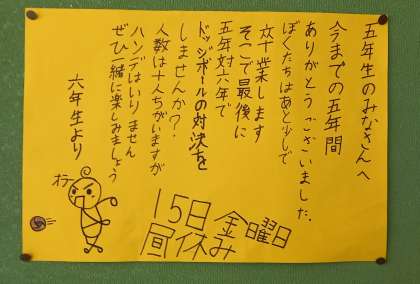 五年生のみなさんへ
今までの五年間
ありがとうございました.
ぼくたちはあと少しで
卒業します
そこで最後に
五年対六年で
ドッジボールの対決を
しませんか?.
人数は十人ちがいますが
ハンデはいりません
ぜひ一緒に楽しみましょう
六年生より
オラー
15日 金曜日
昼休み